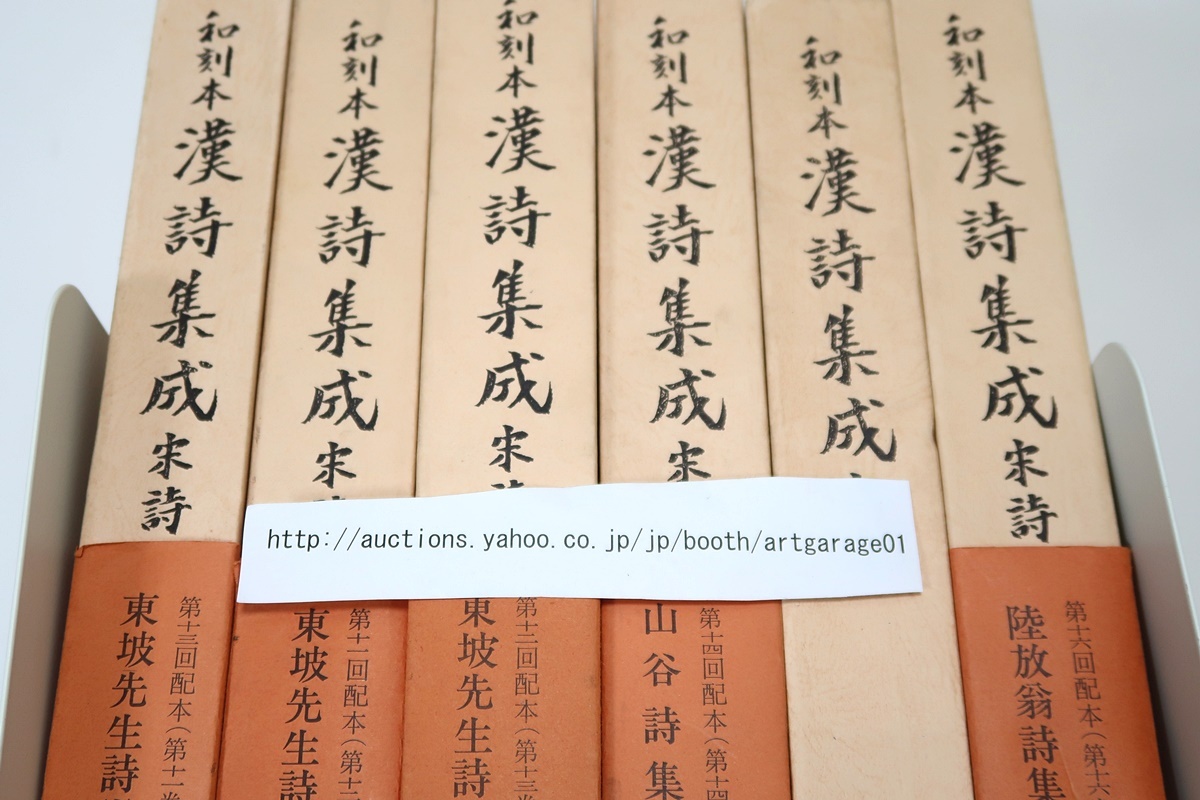 和刻本漢詩集成 宋詩
第十三回配本(第十一巻
東坡先生詩
和刻本漢詩集成 宋
第十一回配本(第十二
東坡先生詩
和刻本漢詩集成 宋
第十二回配本(第十三
東坡先生詩
和刻本漢詩集成 宋
第十四回配本(第十四
山谷詩集
和刻本漢詩集成
和刻本漢詩集成 宋詩
第十六回配本(第十六
陸放翁詩集
http://auctions.yahoo.co.jp/jp/booth/artgarage01